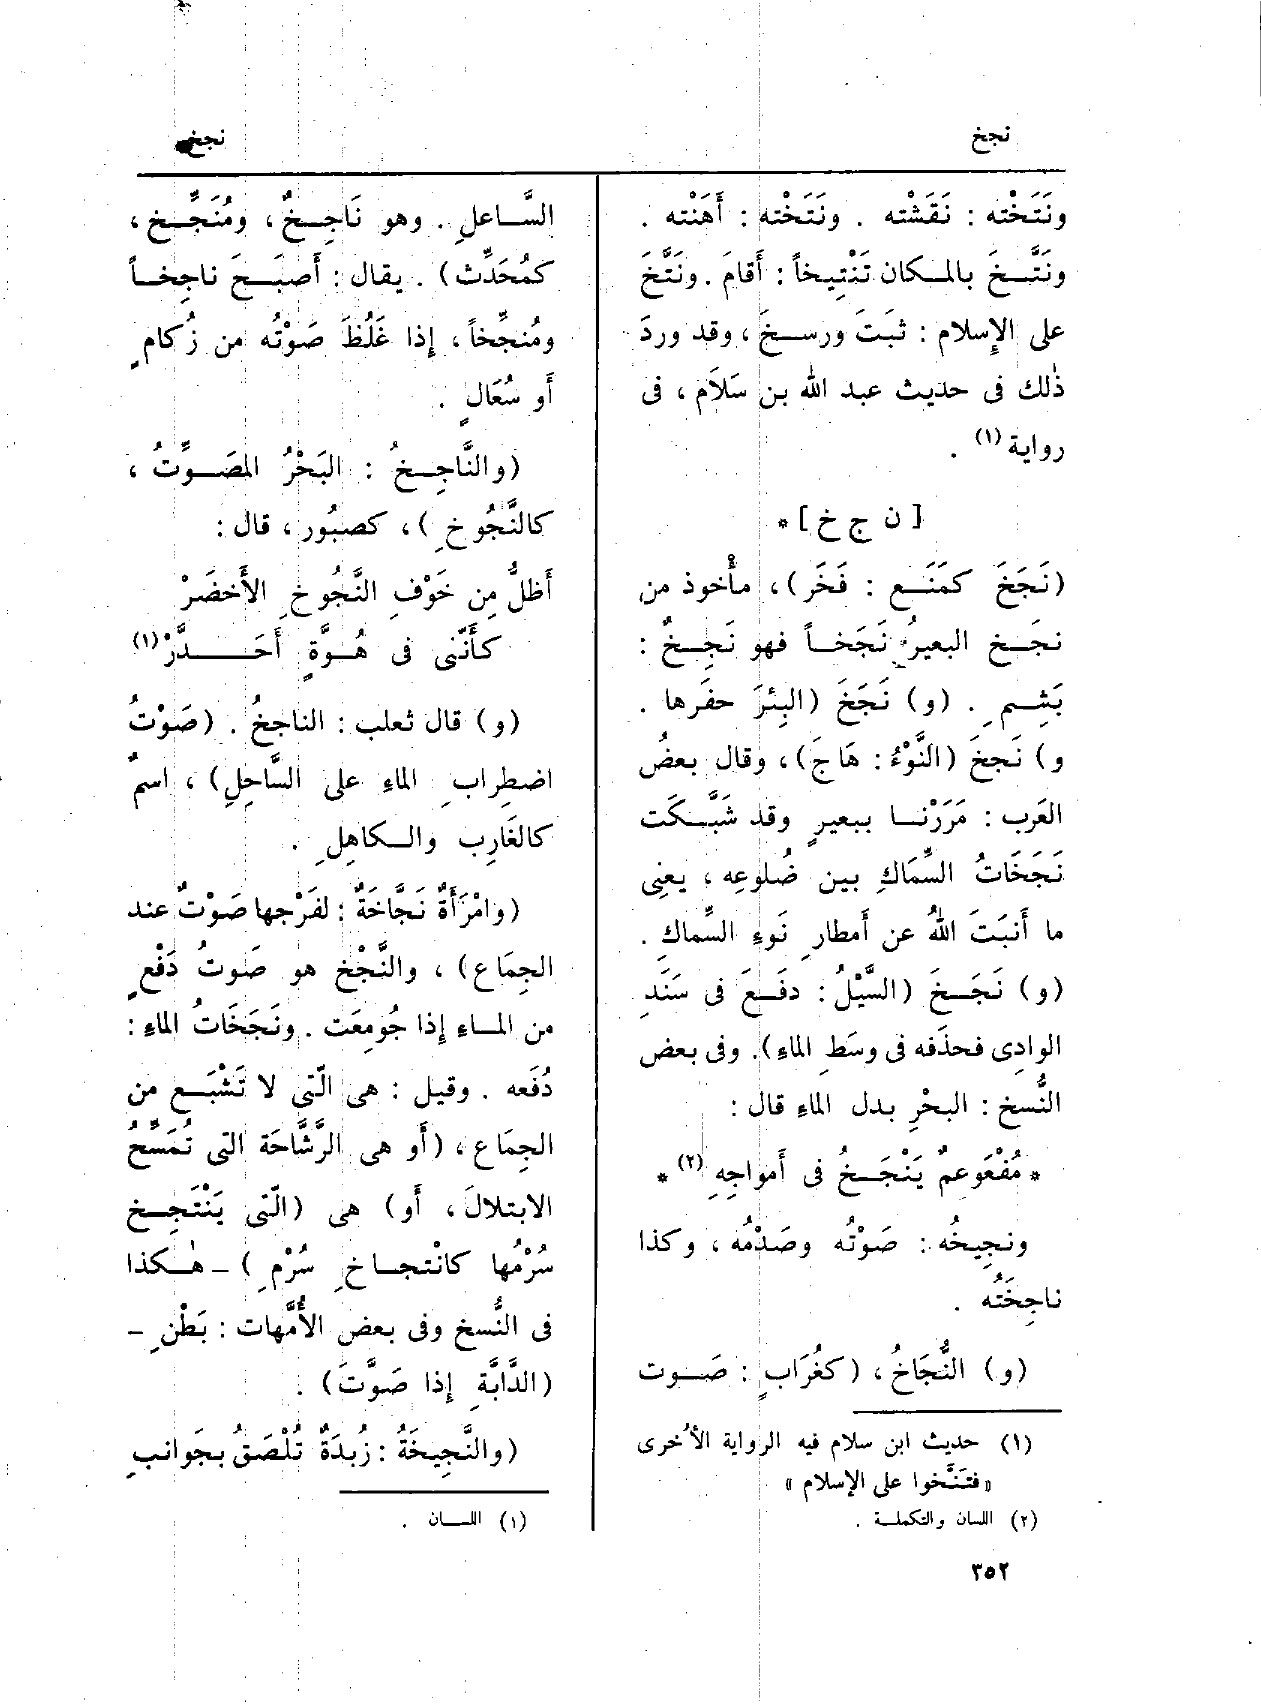 نجخ
نجخ
ونَتَخْته : نَقَشْته . ونَتَخْته : أَهَنْته .
ونَتَّخَ بالمكان تَنْتِيخاً : أَقامَ . ونَتَّخَ
على الإِسلام : ثبَتَ ورسخَ ، وقد وردَ
ذٰلك فى حديث عبد الله بن سَلَام ، فى
رواية (١) .
[ ن ج خ ] *
(نَجَخَ كمَنَع : فَخَر) ، مأْخوذ من
نجَخ البعيرُ نَجَخاً فهو نَجِخٌ :
بَشِمٍ . (و) نَجَخَ (البِئرَ حفَرها .
و) نَجخَ (النَّوْءُ : هَاجَ) ، وقال بعضُ
العَرب : مَرَرْنا ببعيرٍ وقد شَبَّكت
نَجَخَاتُ السِّمَاكِ بين ضُلوعِه ، يعنِى
ما أَنبَتَ اللهُ عن أَمطارِ نَوءِ السِّماكِ .
(و) نَجَخَ (السَّيْلُ : دفَعَ فى سَنَدِ
الوادِى فحذَفه فى وسَطِ الماءِ) . وفى بعض
النُّسخ : البحْرِ بدل الماءِ قال :
* مُفْعَوعِمٌ يَنْجَخُ فى أَمواجِهِ (٢) *
ونجِيخُه : صَوْتُه وصَدْمُه ، وكذا
ناجِخَتُه .
(و) النُّجَاخُ ، (كغُرَابٍ : صَوت
(١) حديث ابن سلام فيه الرواية الأُخرى
« فتَنَّخوا على الإسلام »
(٢) اللسان والتكملة .
السَّاعلِ . وهو نَاجِخٌ ، ومُنَجِّخ ،
كمُحَدِّث) . يقال : أَصبَحَ ناجِخاً
ومُنجِّخاً ، إِذا غَلُظَ صَوْتُه من زُكامٍ
أَو سُعَالٍ .
(والنَّاجِخُ : البَحْرُ المصَوِّتُ ،
كالنَّجُوخِ) ، كصبُور ، قال :
أَظلُّ مِن خَوْفِ النَّجُوخِ الأَخضَرْ
كأَنّنى فى هُوَّةٍ أَحَدَّرْ (١)
(و) قال ثعلب : الناجخُ . (صَوْتُ
اضطِرابِ الماءِ على السَّاحِلِ) ، اسمٌ
كالغَارِب والكاهِلِ .
(وامْرَأَةٌ نَجَّاخَةٌ : لفَرْجها صَوْتٌ عند
الجِمَاع) ، والنَّجْخ هو صَوتُ دَفْعٍ
من الماءِ إِذا جُومِعَت . ونَجَخَاتُ الماءِ :
دُفَعه . وقيل : هى الّتى لا تَشْبَع من
الجِمَاع ، (أَو هى الرَّشَّاحَة التى تُمَسِّحُ
الابتلالَ ، أَو) هى (الّتى يَنْتَجِخ
سُرْمُها كانْتجاخِ سُرْمِ) – هٰكذا
فى النُّسخ وفى بعض الأُمَّهات : بَطْنِ –
(الدَّابَّةِ إِذا صَوَّتَ) .
(والنَّجِيخَةُ : زُبدَةٌ تُلْصَقُ بجَوانبِ
(١) اللسان .
٣٥٢